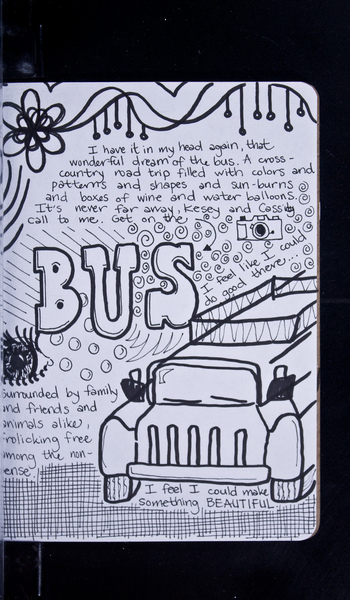 I have it in my head again, that
wonderful dream of the bus. A cross-
country road trip filled with colors and
patterns and shapes and sun-burns
and boxes of wine and water balloons.
It's never far away, Kesey and Cassidy
call to me. Get on the,
BUS
I feel like I could
do good there...
surrounded by family
and friends and
animals alike,
rolicking free
among the non-
ense.
I feel I could make
something BEAUTIFUL.